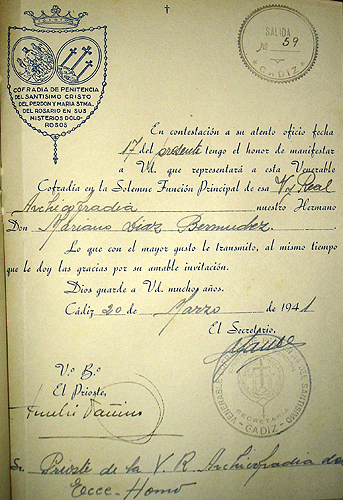 COFRADIA DE PENITENCIA
DEL SANTISIMO CRISTO
DEL PERDON Y MARIA STMA.
DEL ROSARIO EN SUS
MISTERIOS DOLO-
ROSOS
SALIDA
Nº 59
CADIZ
En contestación a su atento oficio fecha
17 del presente tengo el honor de manifestar
a Vd. que representará a esta Venerable
Cofradía en la Solemne Función Principal de esa V. y Real
Archicofradia nuestro Hermano
Don Mariano Diaz Bermudez
Lo que con el mayor gusto le transmito, al mismo tiempo
que le doy las gracias por su amable invitación.
Dios guarde a Vd. muchos años.
Cádiz 20 de Marzo de 1941
El Secretario,
V.º B.º
El Prioste,
VENERABLE
DEL SANTISIMO
SECRETARIA
CADIZ
Sr. Prioste de la V. R. Archicofradia del
Ecce-Homo